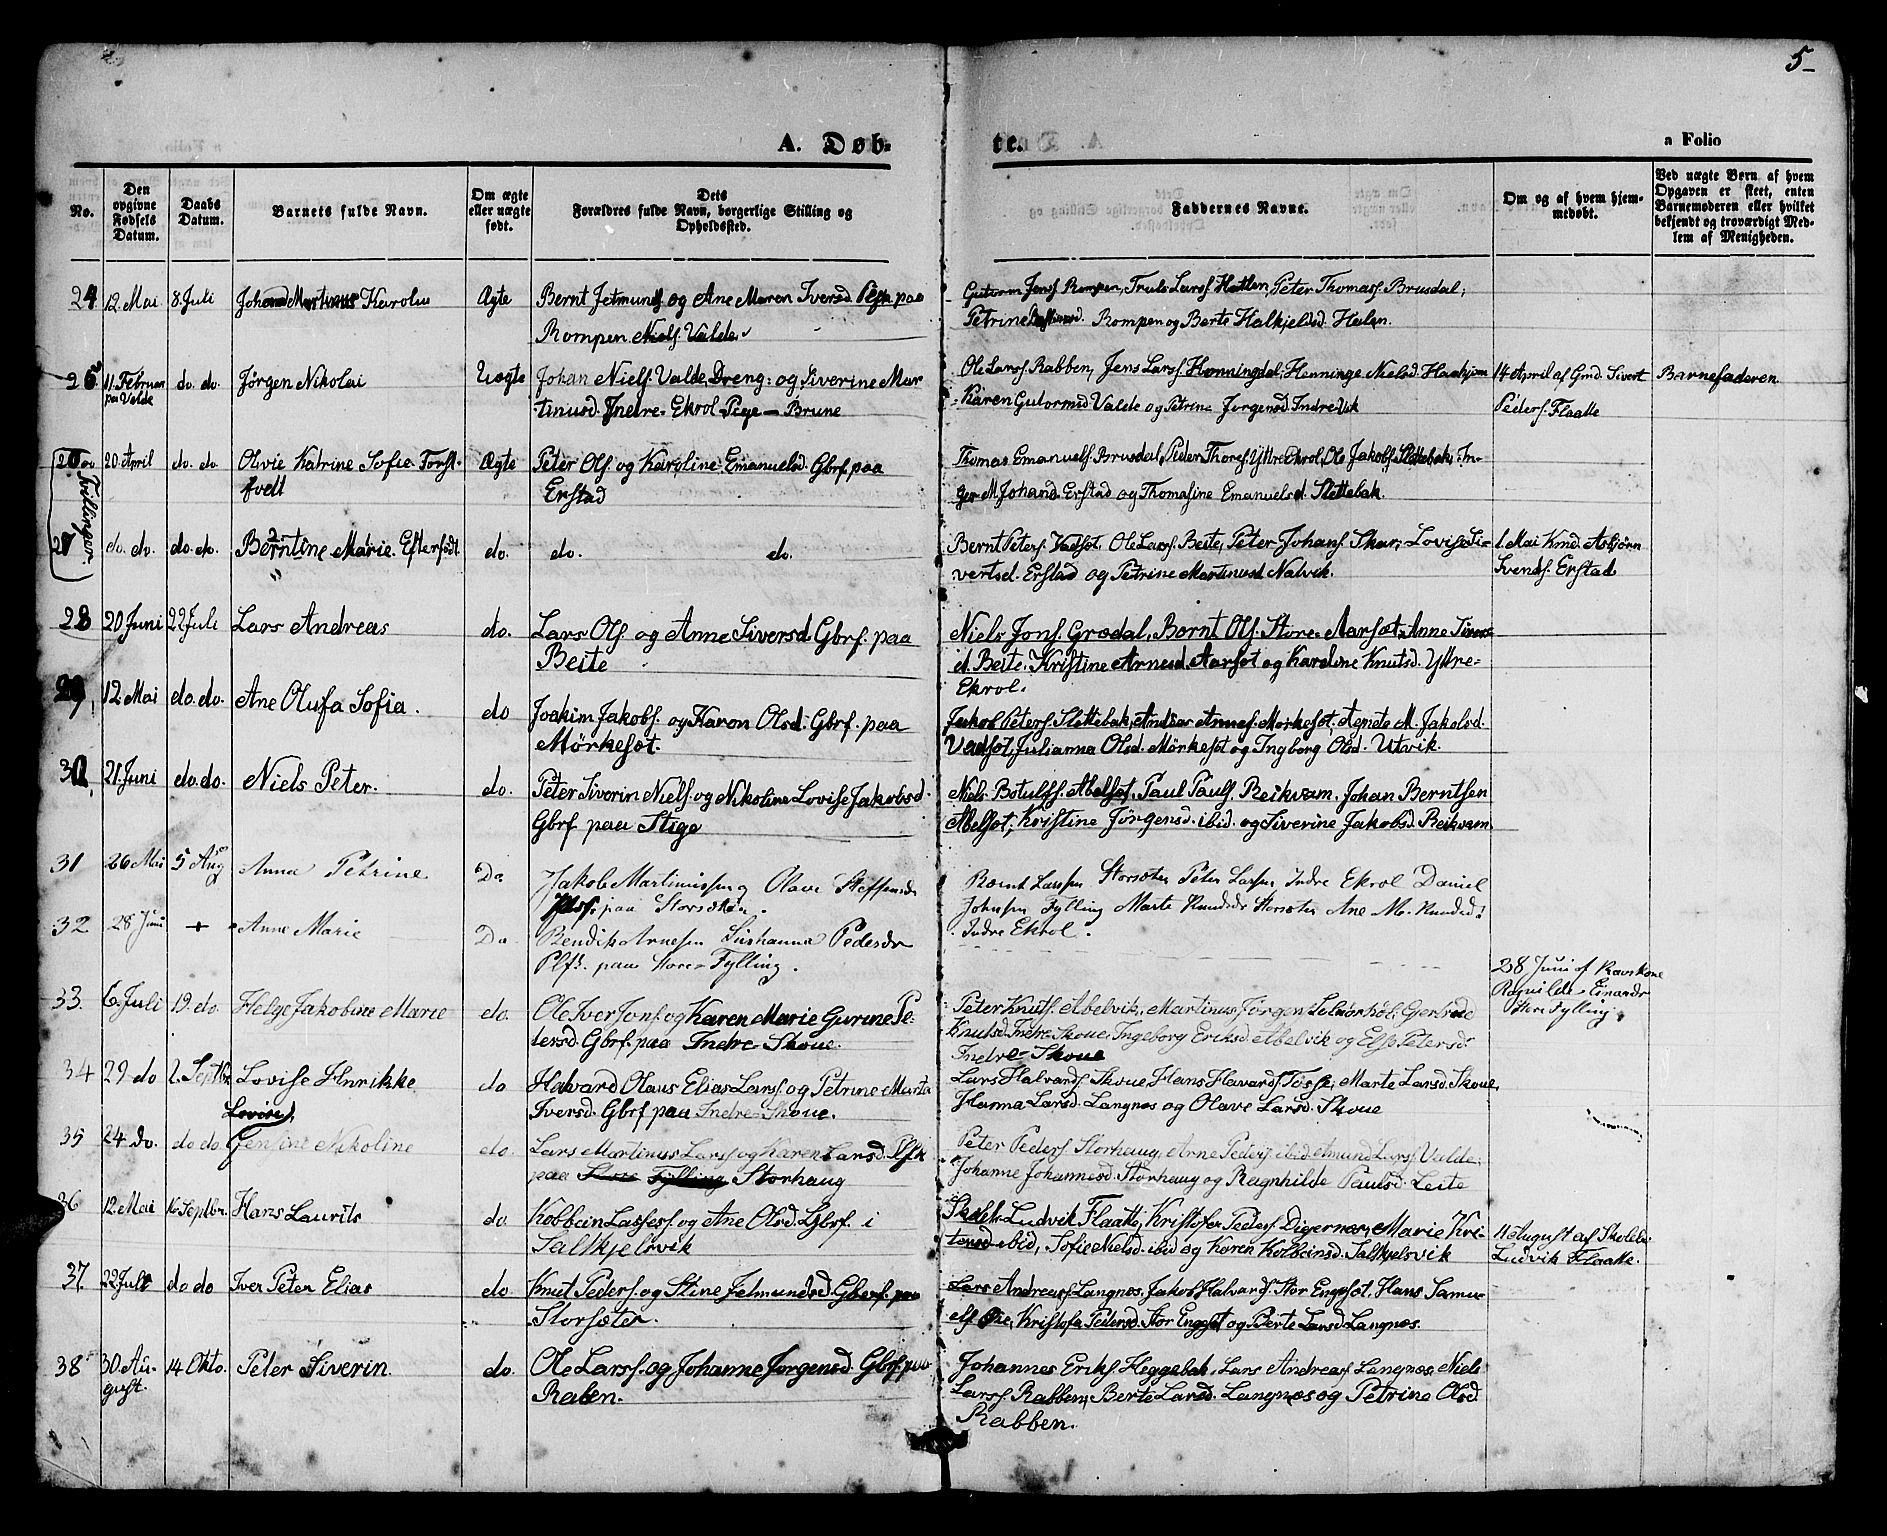 5
A. Døbte.
a Folio
No.
Den opgivne Fødsels Datum.
Daabs Datum.
Barnets fulde Navn.
Om ægte eller uægte født.
Dets Forældres fulde Navn, borgerlige Stilling og Opholdssted.
Faddernes Navne.
Om og af hvem hjemmedøbt.
Ved uægte Børn af hvem Opgaven er skeet, enten Barnemoderen eller hvilket bekjendt og troværdigt Medlem af Menigheden.
24 12 Mai 8 Juli Johan Martinus Karolus Ægte Bernt Jetmunds. og Ane Maren Iversd. paa
Rompen Niels. Valde
Gutorm Jons. Rompen, Truls Lars. Hatlen, Peter Thomas. Brusdal,
Petrine Rompen og Berte Halkjelsd. Helen.
25 11. Februar paa Valde do. do. Jørgen Nikolai Uægte Johan Niels. Valde, Dreng: og Siverine Mar
tinusd. Indre-Ekrol Pige - Brune
Ole Lars. Rabben, Jens Lars. Honningdal, Henninge Nielsd. Haahjem
Karen Gutormsd Valde og Petrine Jørgensd. Indrevik
14 April af Gmd. Sivert
Peders. Flaatte
Barnefaderen
26 20. April do. do. Olvie Katrine Sofie Forst-
født
Ægte Peter Ols. og Karoline Emanuelsd. Gbrf. paa
Erstad
Thomas Emanuels. Brusdal, Peder Thores. Yttre Ekrol, Ole Jakobs. Slettebak, In-
ger M. Johansd. Erstad og Thomasine Emanuelsd. Slettebak.
Tvillinger.
27 do. do. do. do. 2. Berntine Marie. Efterfødt do. do. do.
Bernt Peters. Vadsøt, Ole Lars. Beite, Peter Johans. Skar, Lovise Si-
vertsd. Erstad og Petrine Martinusd Nalvik.
1 Mai Kmd. Asbjørn
Svends. Erstad
28 20 Juni 22 Juli Lars Andreas do. Lars Ols. og Anne Siversd. Gbrf. paa
Beite
Niels Jons. Grødal, Bernt Ols. Store-Aarsæt, Anne Sivers
d. Beite. Kristine Arnesd. Aarsæt og Karoline Knutsd. Yttre-
Ekrol.
29 12. Mai do. do. Ane Olufa Sofia. do Joakim Jakobs. og Karen Olsd. Gbrf. paa
Mørkesæt.
Jakob Peters. Slettebak, Andreas Arnes. Mørkesæt, Agnete M. Jakobsd.
Vadsøt, Julianna Olsd. Mørkesæt og Ingborg Olsd. Utvik.
30 21. Juni do. do. Niels Peter. do. Peter Siverin Niels. og Nikoline Lovise Jakobsd.
Gbrf. paa Stige
Niels Botulfs. Abelsæt, Paul Pauls. Reikvam, Johan Berntsen
Abelsæt, Kristine Jørgensd. ibid. og Siverine Jakobsd. Reikvam.
31 26 Mai 5 Aug Anna Petrine Do Jakob Martinussen og Olave Steffensdr
paa Storsæter.
Bernt Larssen Storsæter Peter Larsen Indre Ekrol Daniel
Johnsen Fylling Marte Knudsdr Storsæter Ane M. Knudsd.
Indre Ekrol.
32 28 Juni + Anne Marie Do Bendik Arnesen Sushanna Pedersdr
Plfk. paa Store-Fylling.
28 Juni af Kavskone
Ragnilde Einarsdr
Store Fylling
33. 6 Juli 19. do. Helge Jakobine Marie do. Ole Iver Jons. og Karen Marie Gurine Pe-
tersd. Gbrf. paa Indre-Skoue.
Peter Knuts. Abelvik, Martinus Jørgen Gertrud
Knutsd. Indre Skoue, Ingeborg Eriksd. Abelvik og Else Petersd.
Indre-Skoue
34 29 do 2. Septbr. Lovise Hnrikke do Halvard Olaus Elias Lars. og Petrine Marta
Iversd. Gbrf. paa Indre-Skoue.
Lars Halvards. Skoue, Hans Havards. Fosse, Marte Larsd. Skoue,
Hanna Larsd. Langnes og Olave Larsd. Skoue
35 24 do. do do Lovise, Jensine Nikoline do. Lars Martinus Lars. og Karen Larsd. Plfk
paa Store Fylling Storhaug
Peter Peders. Storhaug, Arne Peders. ibid. Amund Lars. Valde,
Johanne Johannesd. Storhaug og Ragnhilde Paulsd. Leite
36 12. Mai 16 Septbr. Hans Laurits do. Kolbein Lasses. og Ane Olsd. Gbrf. i
Salkjelsvik
Skolel. Ludvik Flaatte, Kristofer Peders. Digernes, Marie Kri-
tensd. ibid, Sofie Nielsd. ibid og Karen Kolbeinsd. Salkjelsvik
11 August af Skolel.
Ludvik Flaatte.
37. 22 Juli do do Iver Peter Elias do. Knut Peders. og Stine Jetmundsd. Gbrf. paa
Storsæter.
Lars Andreas. Langnes, Jakob Halvards. Stor Engesæt, Hans Samu-
els. Øie, Kristofa Pedersd. Stor Engesæt og Berte Larsd. Langnes.
38 30 Au-
gust. 14 Okto. Peter Siverin do. Ole Lars. og Johanne Jørgensd. Gbrf. paa
Raben.
Johannes Eriks. Heggebak, Lars Andreas. Langnes, Niels
Lars. Rabben, Berte Larsd. Langnes og Petrine Olsd.
Rabben.